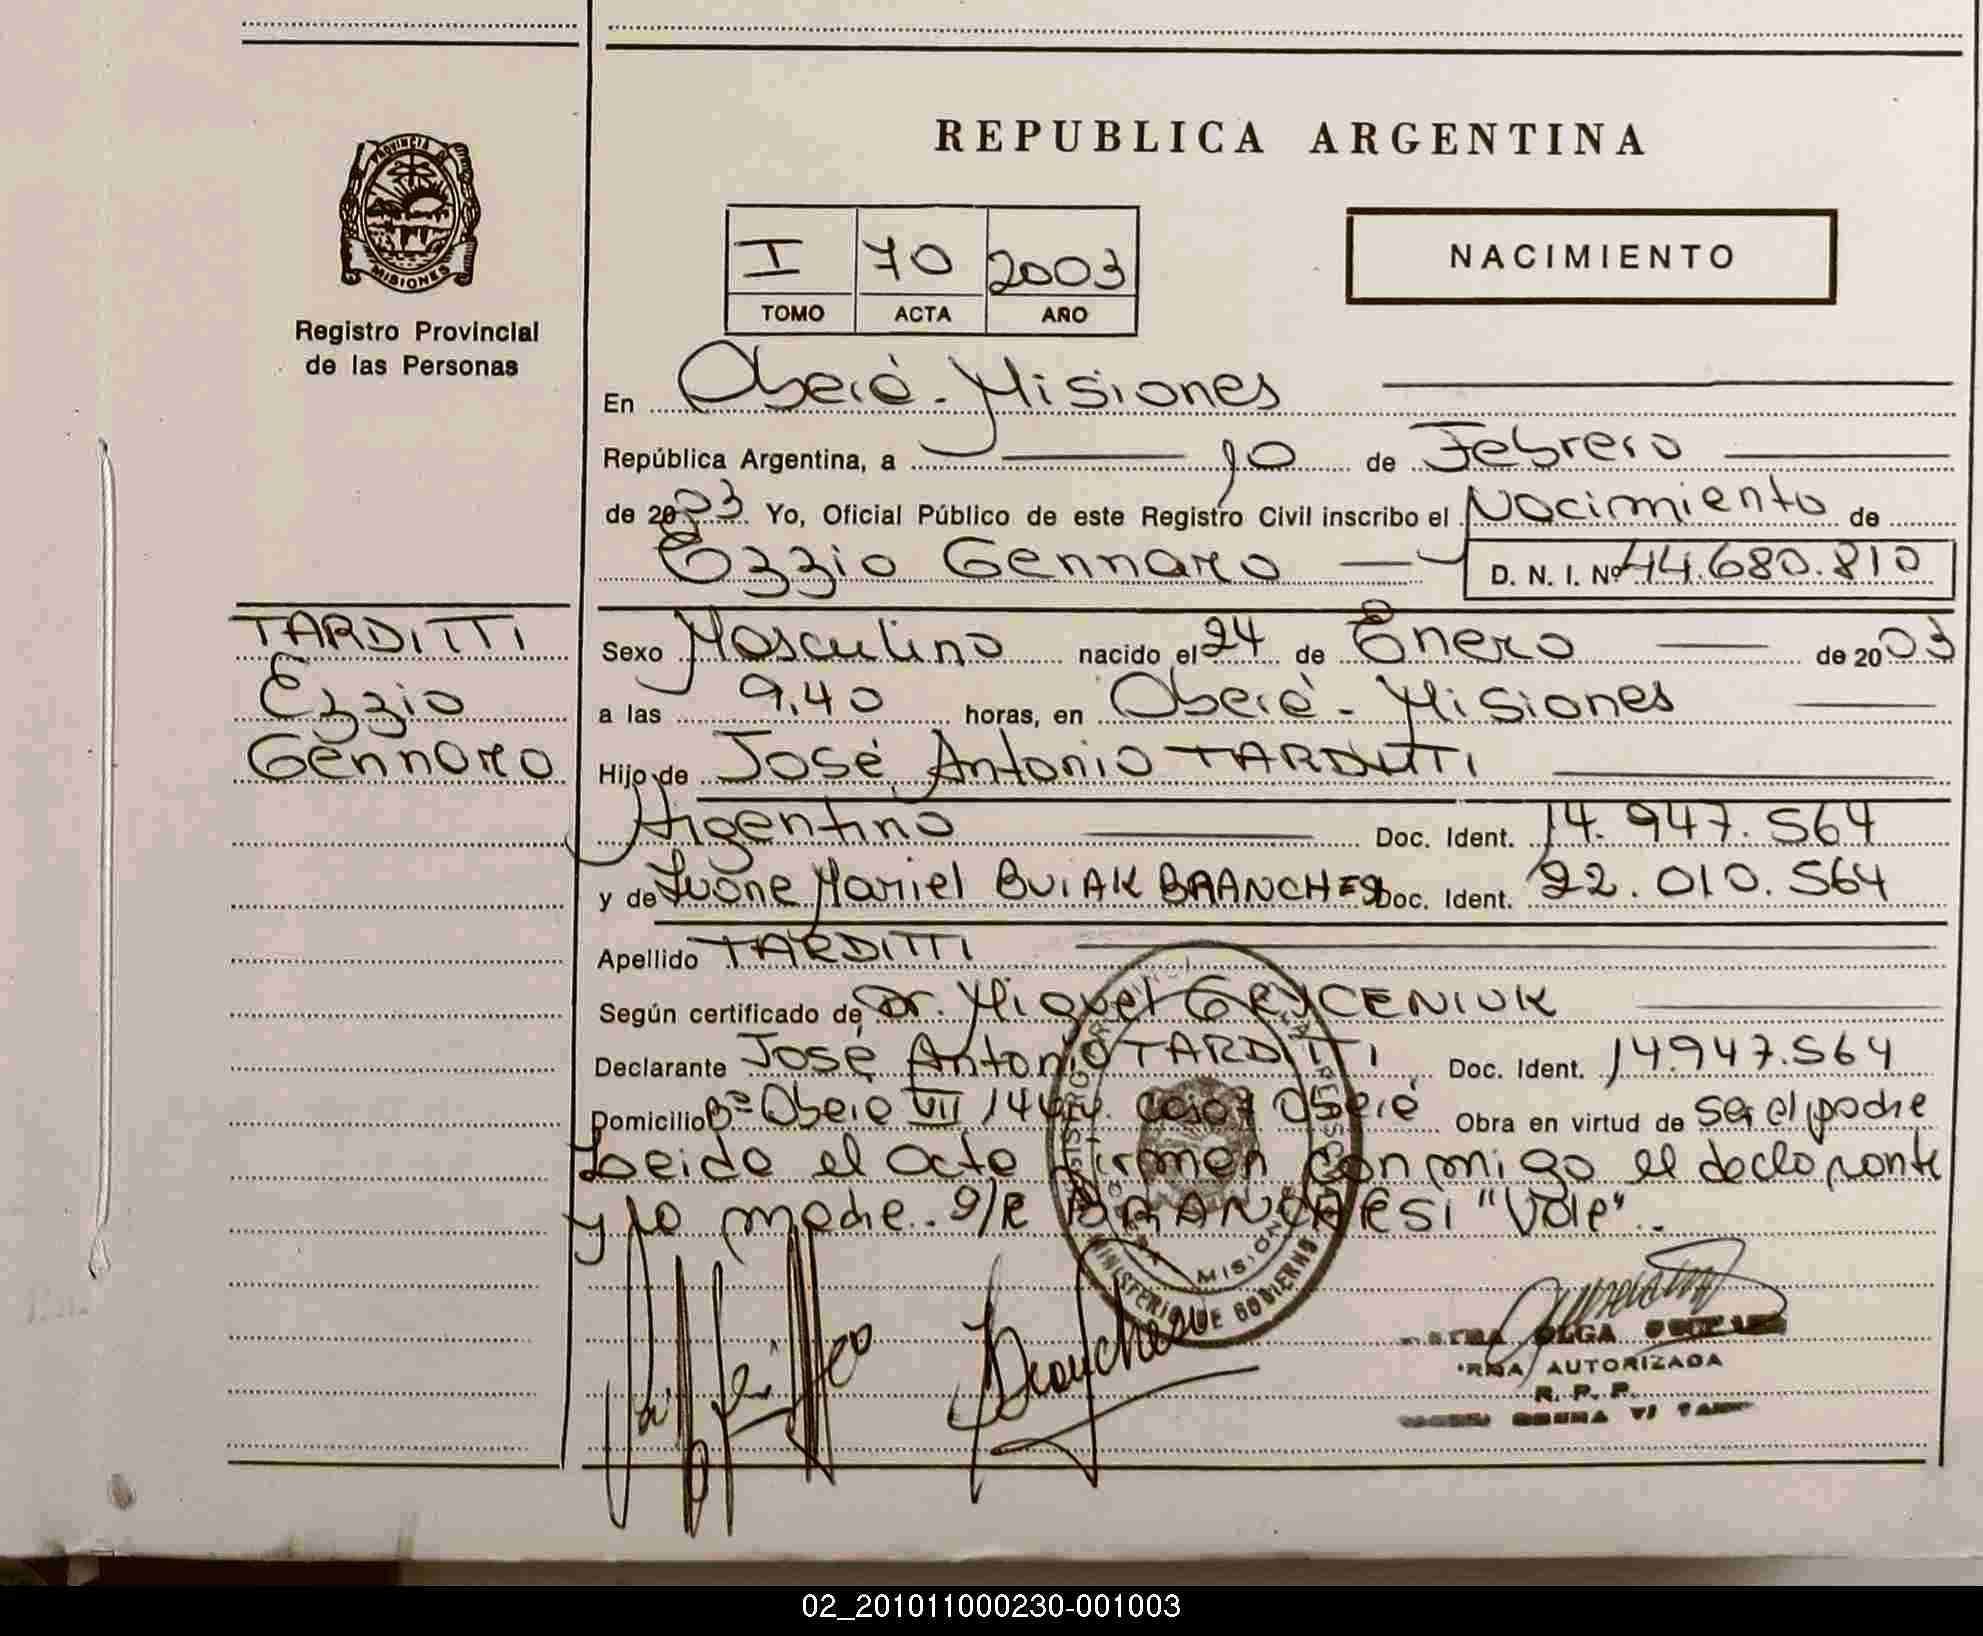 REPUBLICA ARGENTINA
PROVINCIA DE
MISIONES
Registro Provincial
de las Personas
I 70 2003
TOMO ACTA AÑO
NACIMIENTO
En Oberá - Misiones
República Argentina, a 10 de Febrero
de 2003 Yo, Oficial Público de este Registro Civil inscribo el Nacimiento de
Ezzio Gennaro D. N. I. Nº 44.680.810
TARDITTI
Ezzio
Gennaro
Sexo Masculino nacido el 24 de Enero de 2003
a las 9,40 horas, en Oberá - Misiones
Hijo de José Antonio TARDITTI
Argentino Doc. Ident. 14.947.564
y de Ivone Mariel BUIAK Doc. Ident. 22.010.564
Apellido TARDITTI
Según certificado de Dr. Miguel GRYCENIUK
Declarante José Antonio TARDITTI Doc. Ident. 14947.564
Domicilio Bº Oberá VII 144 viv. casa 7 Oberá Obra en virtud de ser el padre
Leida el acta firman conmigo el declarante
y la madre. S/R BRANCHESI "Vale".
MISIONES
MINISTERIO DE GOBIERNO
OLGA
AUTORIZADA
R. P. P.
02_201011000230-001003